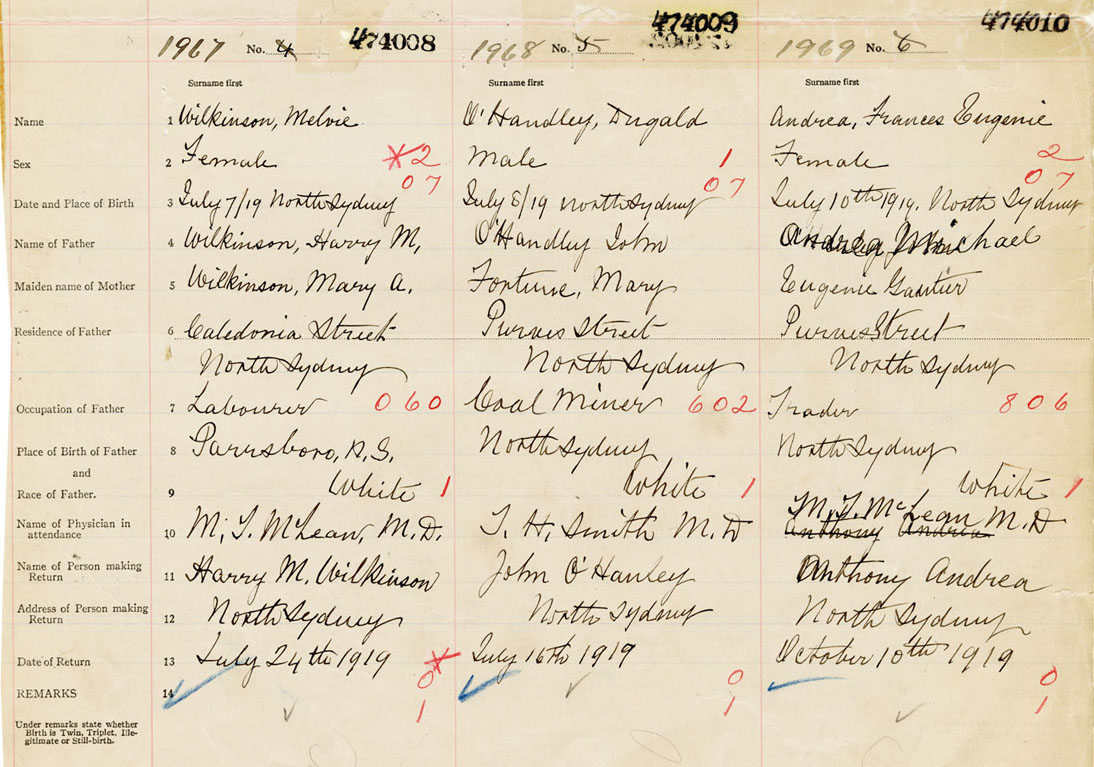 1967 No. 4 474008 1968 No. 5 474009 1969 No. 6 474010
Surname first Surname first Surname first
Name 1 Wilkinson, Melvie O'Handley, Dugald Andrea, Frances Eugenie
Sex 2 Female 2 Male 1 Female 2
07 07 07
Date and Place of Birth 3 July 7/19 North Sydney July 8/19 North Sydney July 10th 1919. North Sydney
Name of Father 4 Wilkinson, Harry M, O'Handley John Andrea Michael
Maiden name of Mother 5 Wilkinson, Mary A. Fortune, Mary Eugenie Gautier
Residence of Father 6 Caledonia Street Purves Street Purves Street
North Sydney North Sydney North Sydney
Occupation of Father 7 Labourer 060 Coal Miner 602 Trader 806
Place of Birth of Father 8 Parrsboro, N.S. North Sydney North Sydney
and
Race of Father. 9 White 1 White 1 White 1
Name of Physician in attendance 10 M, T. McLean, M.D. T. H. Smith M.D M. T. McLean M.D
Anthony Andrea
Name of Person making Return 11 Harry M. Wilkinson John O'Hanley Anthony Andrea
Address of Person making Return 12 North Sydney North Sydney North Sydney
Date of Return 13 July 24th 1919 July 16th 1919 October 10th 1919
0 0 0
REMARKS 14
1 1 1
Under remarks state whether
Birth is Twin, Triplet, Ille-
gitimate or Still-birth.